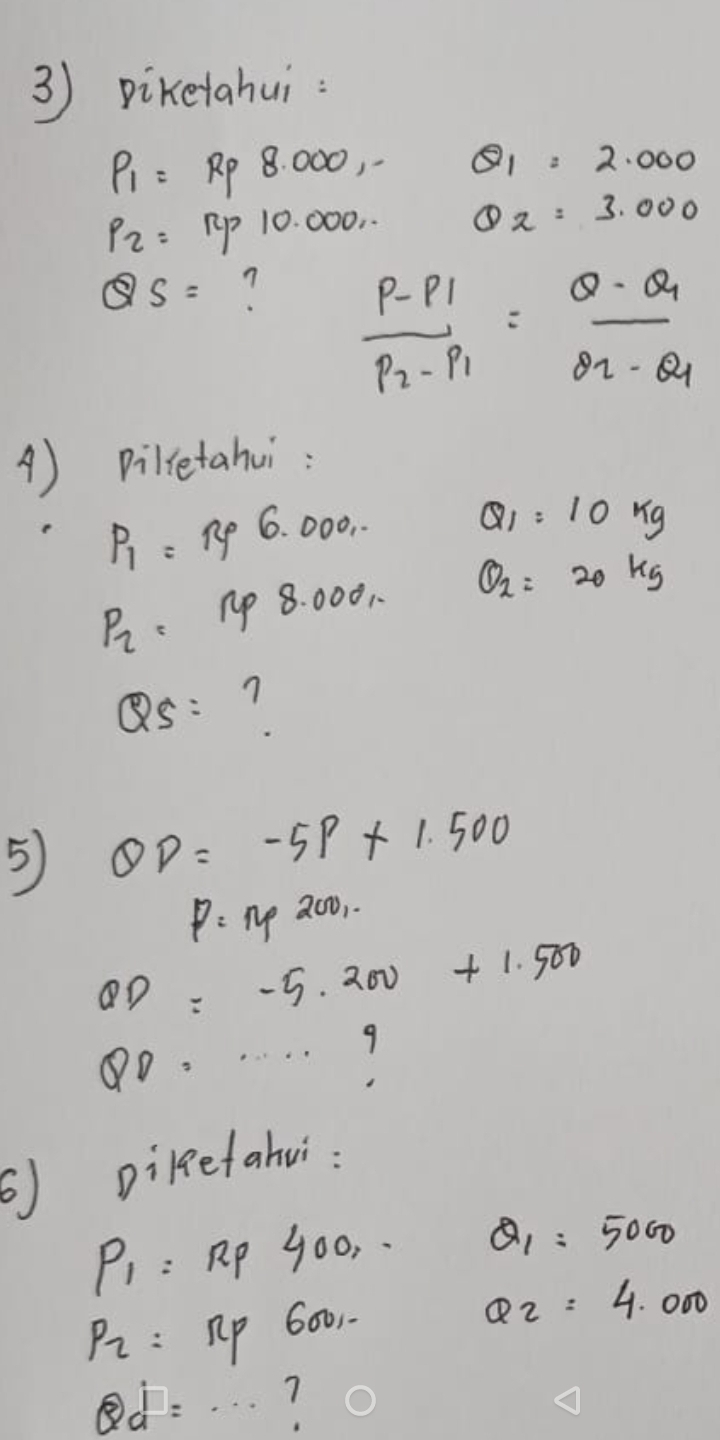 3) Diketahui :
P1 = Rp 8.000,- Q1 = 2.000
P2 = Rp 10.000,- Q2 = 3.000
QS = ?
P-P1 / P2-P1 = Q-Q1 / Q2-Q1
4) Diketahui :
P1 = Rp 6.000,- Q1 = 10 kg
P2 = Rp 8.000,- Q2 = 20 kg
QS = ?
5) QD = -5P + 1.500
P = Rp 200,-
QD = -5. 200 + 1.500
QD = ..... ?
6) Diketahui :
P1 = Rp 400,- Q1 = 5000
P2 = Rp 600,- Q2 = 4.000
Qd = ... ?